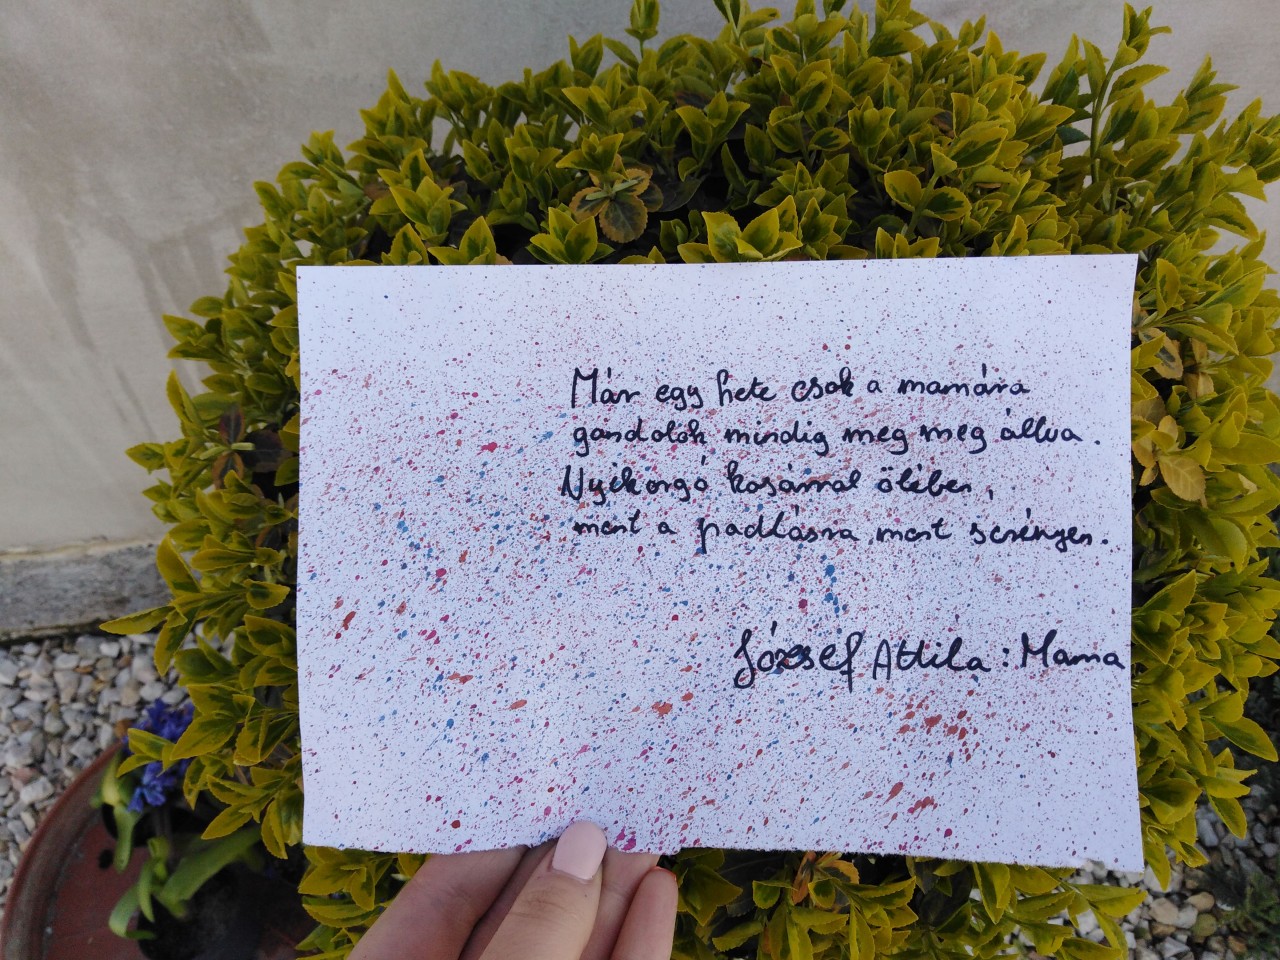 Már egy hete csak a mamára
gondolok mindig meg meg állva.
Nyikorgó kosárral ölében,
ment a padlásra, ment serényen.
József Attila: Mama